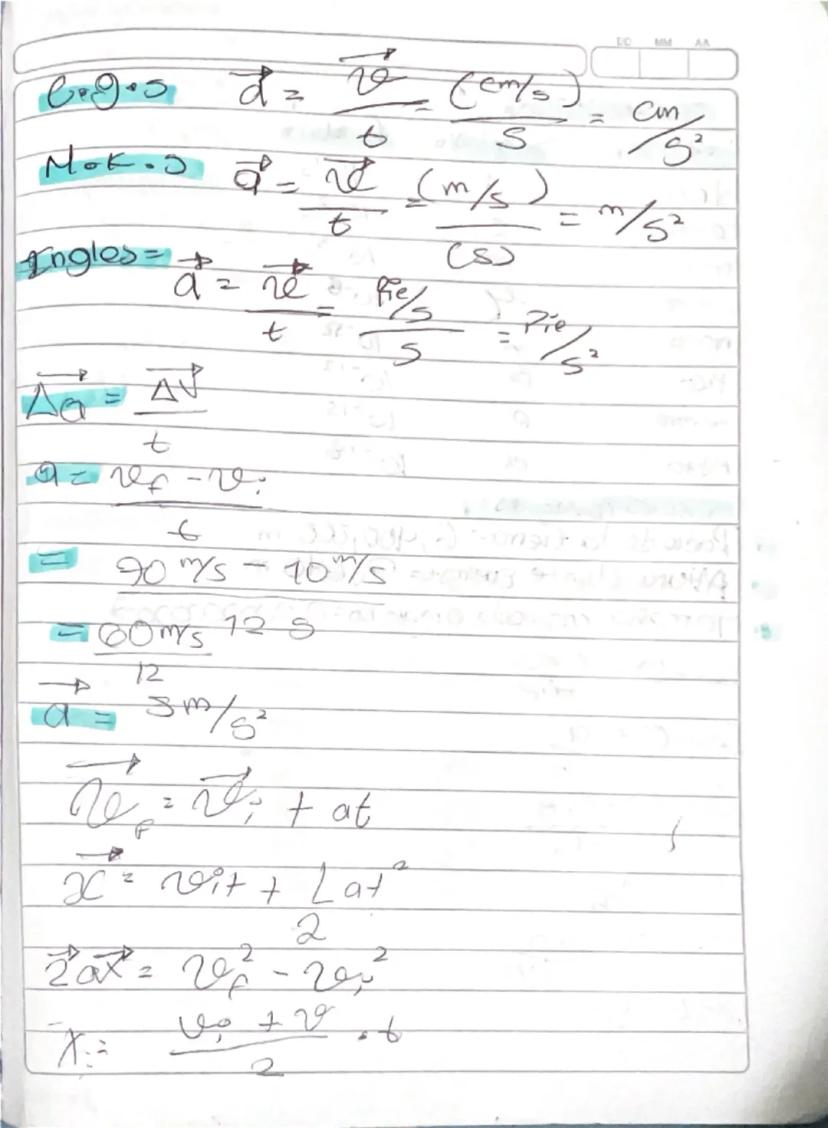 DD MM AA
C.g.s a = v/t = (cm/s)/s = cm/s²
M.K.S a = v/t = (m/s)/(s) = m/s²
Ingles = a = v/t = Pie/s/s = Pie/s²
Δa = Δv/t
a = vf - vi / t
= 70 m/s - 10 m/s
= 60 m/s 12 s
12
a = 5 m/s²
vf = vi + at
x = vit + 1/2 at²
2ax = vf² - vi²
x = vo + v / 2 · t